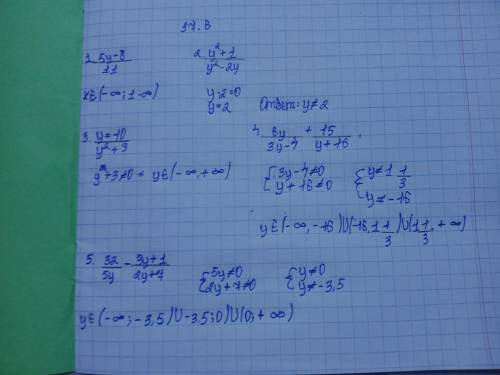 17.В
1. (5y-8)/11
x∈(-∞; 1-∞)
2. (y²+1)/(y²-2y)
y-2=0
y=2
Ответ: y≠2
3. (y=10)/(y²+3)
y²+3≠0 = y∈(-∞,+∞)
4. 8y/(3y-4) + 15/(y+16).
{3y-4≠0
y+16≠0
{y≠1 1/3
y≠-16
y∈(-∞,-16)∪(-16, 1 1/3)∪(1 1/3, +∞)
5. 32/5y - (3y+1)/(2y+7)
{5y≠0
2y+7≠0
{y≠0
y≠-3,5
y∈(-∞;-3,5)∪-3,5;0)∪(0,+∞)